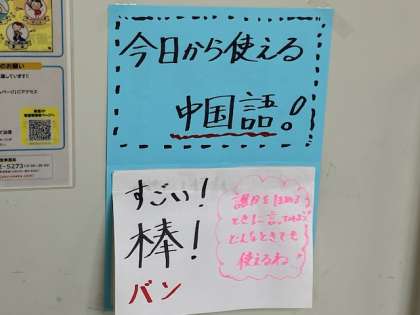 今日から使える
中国語!
すごい!
棒!
バン
誰かをほめる
ときに言ってみよう
どんなときでも
使えるね